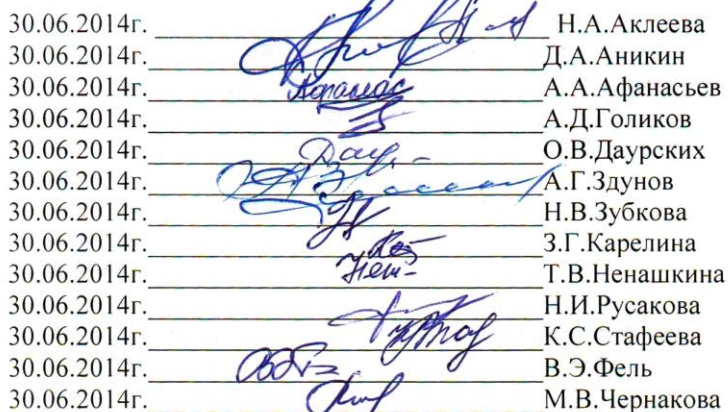 30.06.2014г. Н.А.Аклеева
30.06.2014г. Д.А.Аникин
30.06.2014г. А.А.Афанасьев
30.06.2014г. А.Д.Голиков
30.06.2014г. О.В.Даурских
30.06.2014г. А.Г.Здунов
30.06.2014г. Н.В.Зубкова
30.06.2014г. З.Г.Карелина
30.06.2014г. Т.В.Ненашкина
30.06.2014г. Н.И.Русакова
30.06.2014г. К.С.Стафеева
30.06.2014г. В.Э.Фель
30.06.2014г. М.В.Чернакова